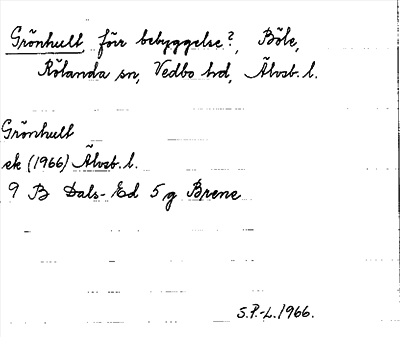 Grönhult, förr bebyggelse?, Böle,
Rölanda sn, Vedbo hd, Älvsb. l.
Grönhult
ek (1966) Älvsb. l.
9 B Dals-Ed 5 g Brene
S.P.-L. 1966.